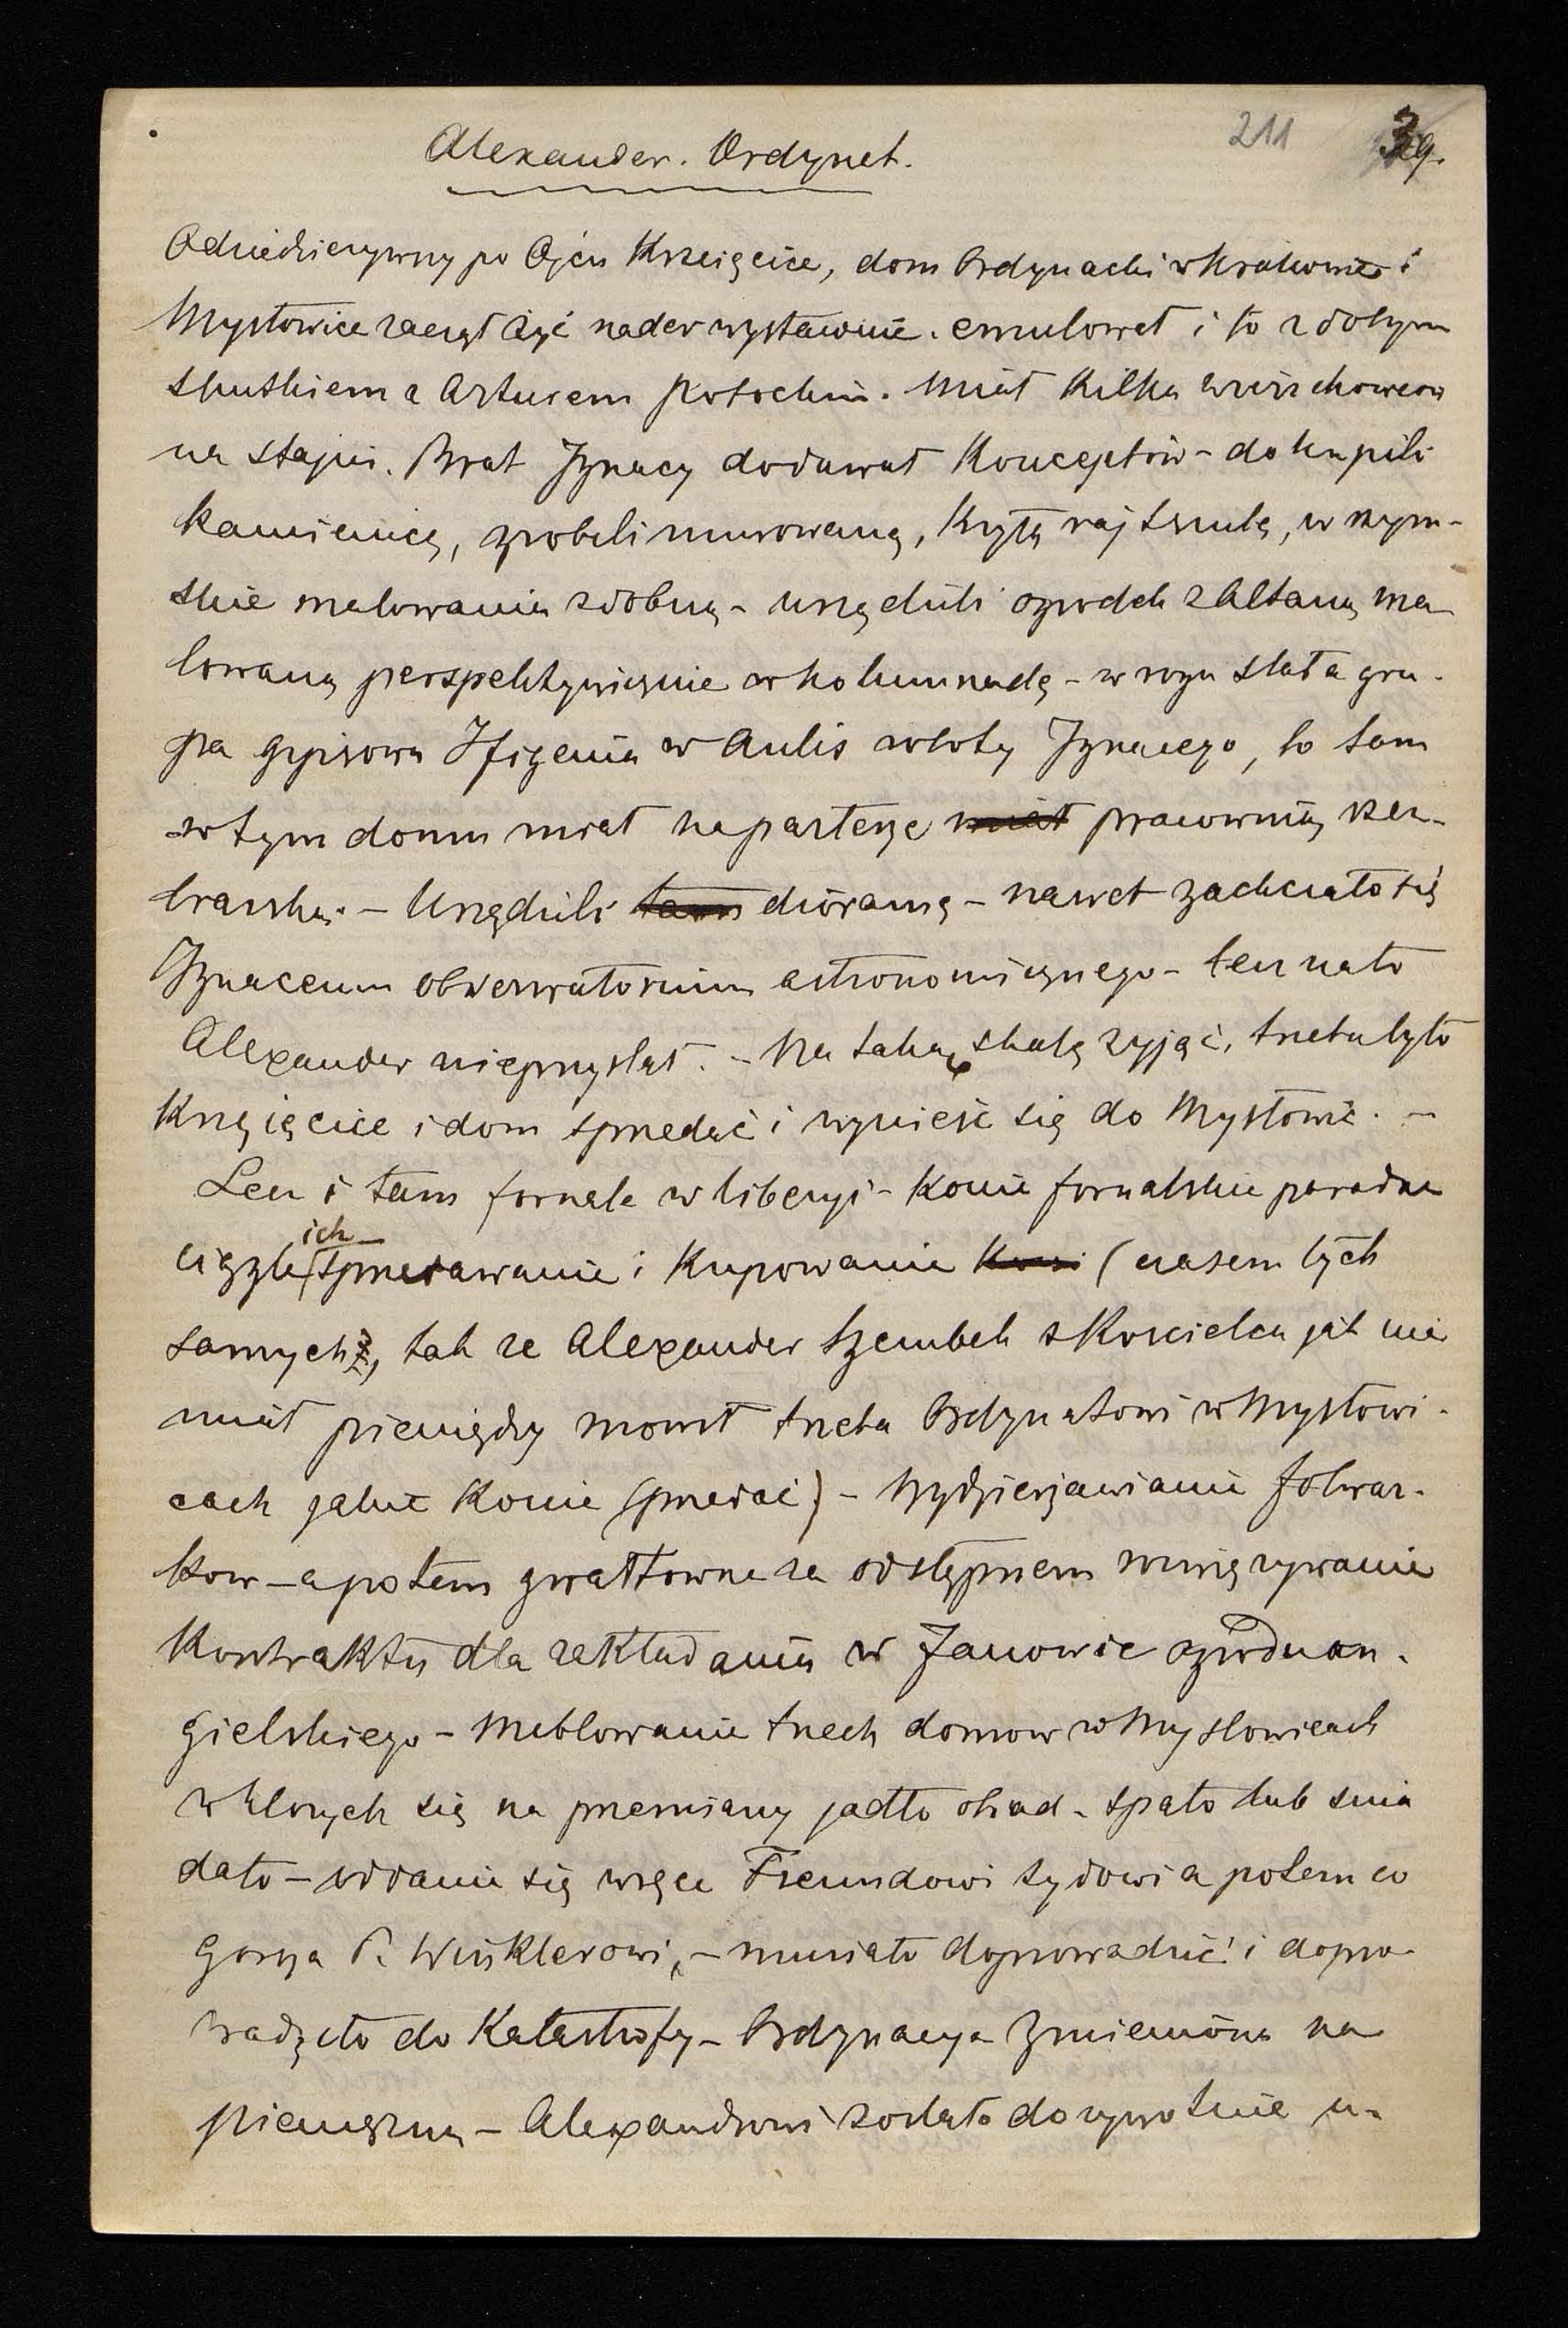 211 39.
Alexander. Ordynat.
Odziedziczywszy po Ojcu Krzcięcice, dom Ordynacki w Krakowie i
Mysłowice zaczął żyć nader wystawnie. emulował i to z dobrym
skutkiem z Arturem Potockim. Miał kilka wierzchowców
na stajni. Brat Ignacy dodawał konceptów – dokupili
kamienicę, zrobili murowaną, krytą rajtszulę, w rzym-
skie malowania zdobną – urządzili ogródek z Altaną ma
lowaną perspektywicznie w kolumnadę – w rogu stała gru-
pa gypsowa Ifigenia w Aulis roboty Ignacego, bo tam
w tym domu miał na parterze miał pracownię rzeź-
biarską. – Urządzili tam dioramę – nawet zachciało się
Ignacemu obserwatorium astronomicznego – lecz na to
Alexander nie przystał. – Na taką skalę żyjąc, trzeba było
Krzcięcice i dom sprzedać i wynieść się do Mysłowic. –
Lecz i tam fornale w liberyi – konie fornalskie paradne
ciągłe ich sprzedawanie i kupowanie koni (czasem tych
samych), tak że Alexander Szembek z Kościelca jak nie
miał pieniędzy mówił trzeba Ordynatowi w Mysłowi-
cach jakie konie sprzedać) – Wydzierżawianie folwar-
ków – a potem gwałtowne za odstępnem rozwiązywanie
kontraktu dla zakładania w Janowie ogrodu an-
gielskiego – meblowanie trzech domów w Mysłowicach
w których się na przemiany jadło obiad – spało lub śnia
dało – oddanie się w ręce Freundowi żydowi a potem co
gorsza P. Winklerowi, – musiało doprowadzić i dopro-
wadziło do katastrofy – Ordynacya zmieniona na
pieniężną – Alexandrowi zostało dożywotnie u-